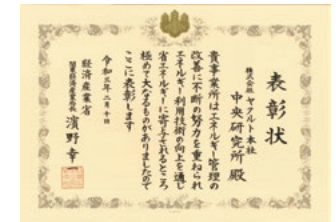 表彰状
株式会社 ヤクルト本社
中央研究所 殿
貴事業所はエネルギー管理の
改善に不断の努力を重ねられ
エネルギー利用技術の向上を通じ
省エネルギーに寄与されるところ
極めて大なるものがありましたので
ここに表彰します
令和三年二月十日
経済産業省
関東経済産業局長 濱野幸一